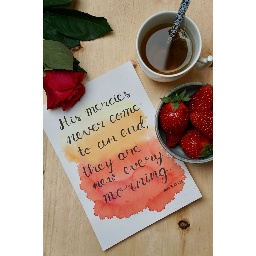 His mercies
never come
to an end,
they are
new every
morning.